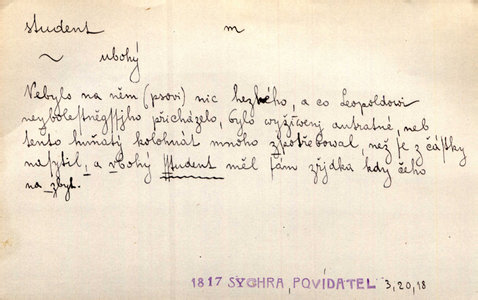 student m
~ ubohý
Nebylo na něm (psovi) nic hezkého, a co Leopoldowi
neybolestněgssjho přicházelo, bylo wyžiwenj autratné, neb
tento huňatý kolohnát mnoho zpotřebowal, než se z částky
nasytil, a vbohý Student měl sám zřjdka kdy čeho
na zbyt.
1817 SYCHRA, POVÍDATEL 3,20,18